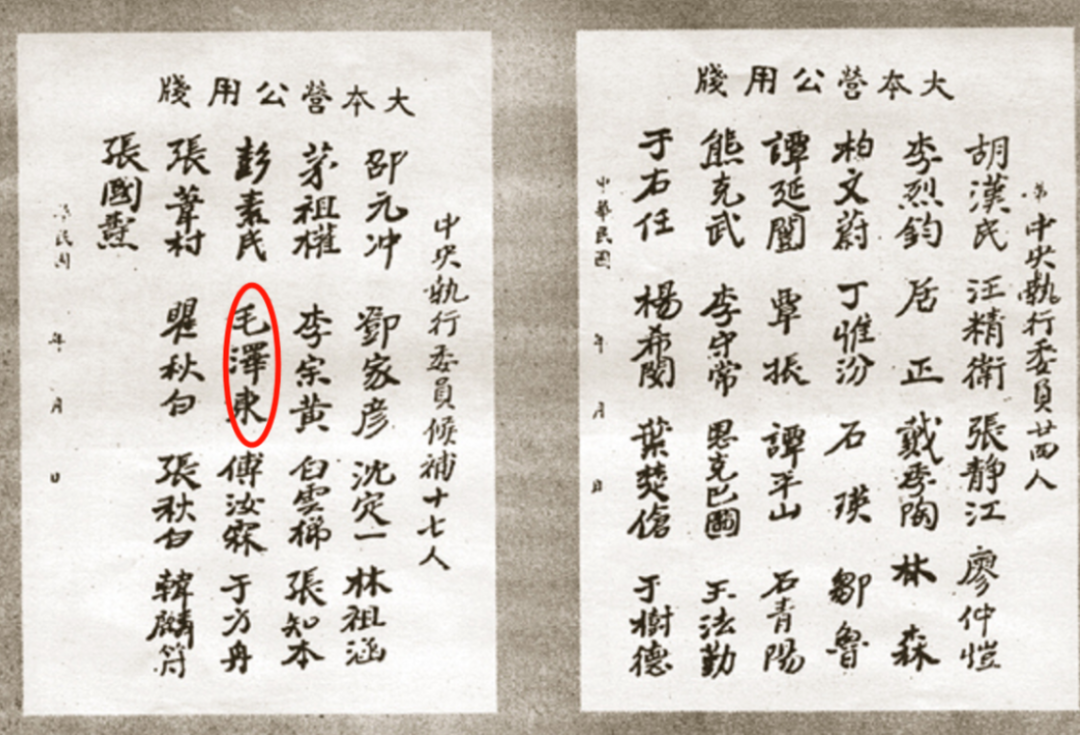 大本營公用牋
中央執行委員廿四人
胡漢民 汪精衛 張靜江 廖仲愷
李烈鈞 居正 戴季陶 林森
柏文蔚 丁惟汾 石瑛 鄒魯
譚延闓 覃振 譚平山 石青陽
熊克武 李守常 恩克巴圖 王法勤
于右任 楊希閔 葉楚傖 于樹德
中華民國 年 月 日
大本營公用牋
中央執行委員候補十七人
邵元冲 鄧家彦 沈定一 林祖涵
茅祖權 李宗黃 白雲梯 張知本
彭素民 毛澤東 傅汝霖 于方舟
張葦村 瞿秋白 張秋白 韓麟符
張國燾
民國 年 月 日